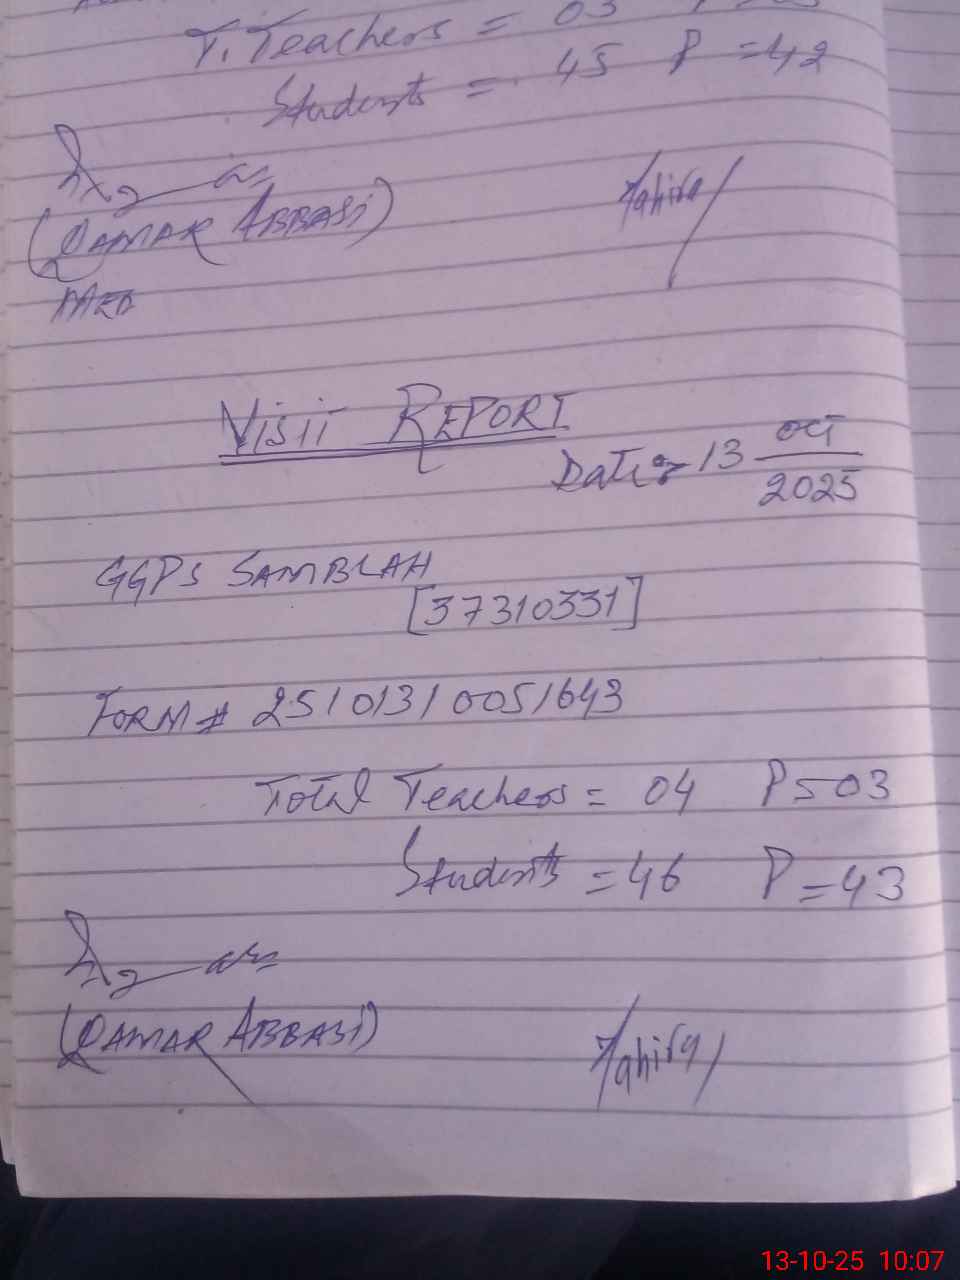 T. Teachers = 03
Students = 45 P = 42
(QAMAR ABBASI)
Tahira
MEA
VISIT REPORT
Date 13 OCT
2025
GGPS SAMBLAH
[37310331]
FORM # 25101310051643
Total Teachers = 04 P = 03
Students = 46 P = 43
(QAMAR ABBASI)
Tahira
13-10-25 10:07